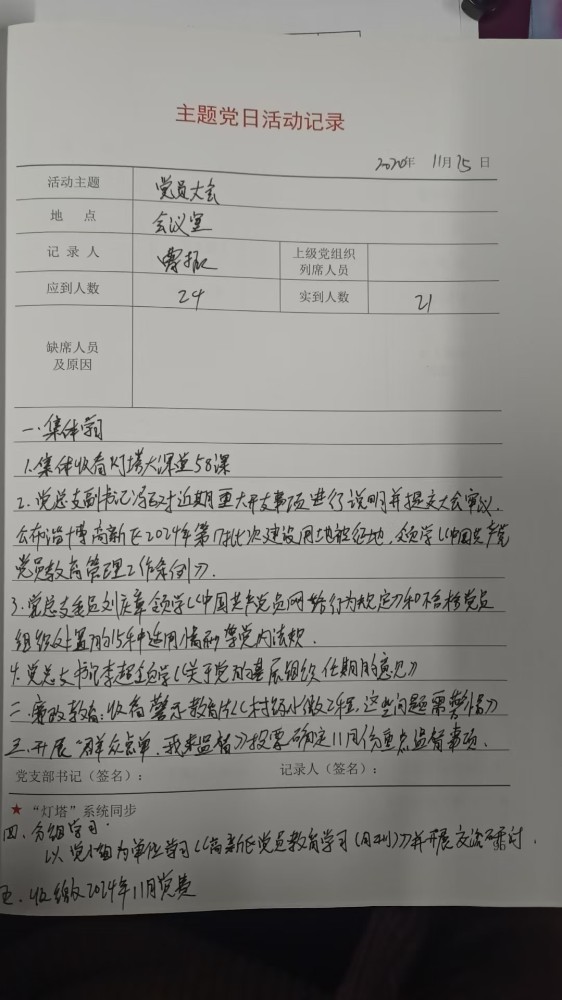 主题党日活动记录
2024年 11月25日
活动主题 党员大会
地 点 会议室
记 录 人 上级党组织列席人员
应到人数 24 实到人数 21
缺席人员及原因
一.集体学习
1.集体收看灯塔大课堂58课
2.党总支副书记 对近期重大开支事项进行说明并提交大会审议.
公布淄博高新区2024年第17批次建设用地被征地,领学《中国共产党
党员教育管理工作条例》.
3.党总支委员刘庆章领学《中国共产党员网络行为规定》和不合格党员
组织处置的15年中运用 党内法规.
4.党总支书记李超领学《关于党的基层组织任期的意见》
二.廉政教育:收看警示教育片《村级小微工程,这些问题需警惕》
三.开展“群众点单、我来监督》投票确定11月份重点监督事项.
党支部书记(签名): 记录人(签名):
★“灯塔”系统同步
四、分组学习.
以党小组为单位学习《高新区党员教育学习(月刊)》并开展交流研讨.
五.收缴2024年11月党费